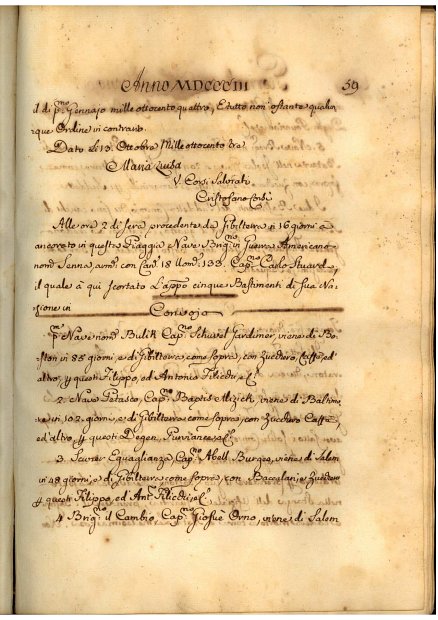 Anno MDCCCIII 59
il di p.mo Gennajo mille ottocento quattro, E tutto non ostante qualun-
que Ordine in contrario.
Dato li 13. Ottobre Mille ottocento tre
Maria Luisa
V. Corsi Salviati
Cristofano
Alle ore 2 di sera procedente da Gibilterra in 16 giorni è
ancorato in questa Piaggia Nave Brig.no in Guerra Americano
nom.o Senna, arm.o con Can.i 18 Uom.i 133. Cap.no Carlo Stuard,
il quale à qui scortato L'appo cinque Bastimenti di sua Na-
zione in
Convojo
p.a Nave nom.a Cap.no Gardiner, viene di Bo-
ston in 85 giorni, e di Gibilterra come sopra, con Zucchero, Caffe, ed
altro, p questi Filippo, ed Antonio Filicchi, e C.
2. Nave Cap.no Baptis viene di Baltimo-
re in 102. giorni, e di Gibilterra come sopra, con Zucchero Caffe,
ed'altro, p questi Degen, Purviance, e C.
3. Scuner Eguaglianza, Cap.no Abell. Burges, viene di Salem
in 48 giorni, e di Gibilterra come sopra, con Baccalari, e Zucchero
p questi Filippo, ed Ant.o Filicchi, e C.
4 Brig.no il Cambio Cap.no Giosuè Orno, viene di Salem